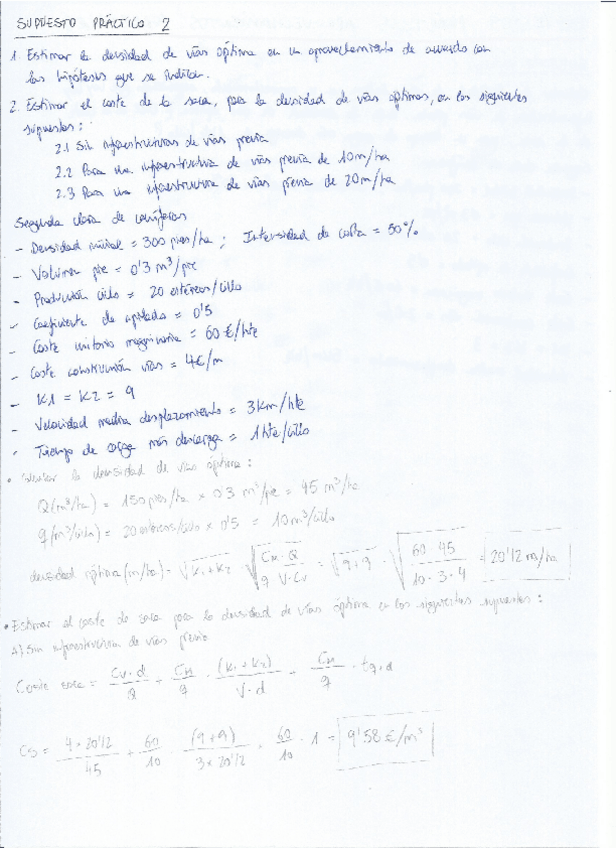 SUPUESTO PRÁCTICO 2
1. Estimar la densidad de vías óptima en un aprovechamiento de acuerdo con
las hipótesis que se indican.
2. Estimar el coste de la saca, para la densidad de vías óptimas, en los siguientes
supuestos:
2.1 Sin infraestructuras de vías previa
2.2 Para una infraestructura de vías previa de 10m/ha
2.3 Para una infraestructura de vías previa de 20m/ha
Segunda clara de coníferas
- Densidad inicial = 300 pies/ha ; Intensidad de corta = 50%
- Volumen pie = 0'3 m³/pie
- Producción ciclo = 20 estéreos/ciclo
- Coeficiente de apilado = 0'5
- Coste unitario maquinaria = 60 €/hte
- Coste construcción vías = 4€/m
- K1 = K2 = 9
- Velocidad media desplazamiento = 3Km/hte
- Tiempo de carga más descarga = 1hte/ciclo
• la densidad de vías óptima :
Q(m³/ha) = 150 pies/ha x 0'3 m³/pie = 45 m³/ha
q(m³/ciclo) = 20 estéreos/ciclo x 0'5 = 10m³/ciclo
densidad óptima (m/ha) = √K1+K2 · √(CM · Q / q · V · Cv) = √9+9 · √(60 · 45 / 10 · 3 · 4) = 20'12 m/ha
• Estimar el coste de saca para la densidad de vías óptima en los siguientes supuestos :
Sin infraestructura de vías previa
Coste saca = Cv · d / Q + CM / q · (K1 + K2) / V · d + CM / q · tq,d
CS = 4 x 20'12 / 45 + 60 / 10 · (9 + 9) / 3 x 20'12 + 60 / 10 · 1 = 9'58 €/m³